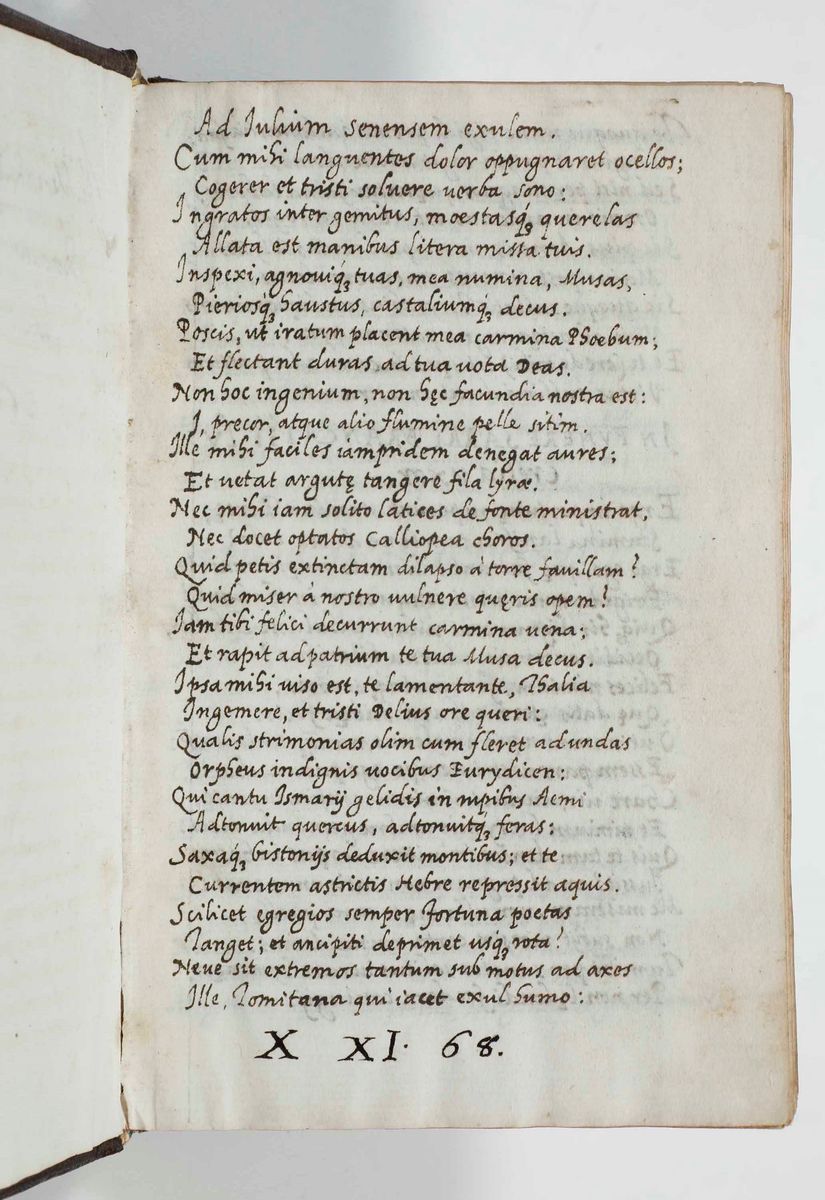 Ad Iulium Senensem exulem.
Cum mihi languentes dolor oppugnaret ocellos;
Cogerer et tristi soluere verba sono:
Ingratos inter gemitus, moestasq́ꝫ querelas
Allata est manibus litera missa tuis.
Inspexi, agnouiq́ꝫ tuas, mea numina, Musas,
Pieriosq́ꝫ haustus, castaliumq́ꝫ decus.
Poscis, ut iratum placent mea carmina Phoebum;
Et flectant duras ad tua uota Deas.
Non hoc ingenium, non hęc facundia nostra est:
I, precor, atque alio flumine pelle sitim.
Ille mihi faciles iampridem denegat aures;
Et uetat argutę tangere fila lyræ.
Nec mihi iam solito latices de fonte ministrat,
Nec docet optatos Calliopea choros.
Quid petis extinctam dilapso à torre fauillam?
Quid miser à nostro uulnere quęris opem?
Iam tibi felici decurrunt carmina uena;
Et rapit ad patrium te tua Musa decus.
Ipsa mihi viso est, te lamentante, Thalia
Ingemere, et tristi Delius ore queri:
Qualis strimonias olim cum fleret ad undas
Orpheus indignis uocibus Eurydicen:
Qui cantu Ismarij gelidis in rupibus Aemi
Adtonuit quercus, adtonuitq́ꝫ feras;
Saxaq́ꝫ bistonijs deduxit montibus; et te
Currentem astrictis Hebre repressit aquis.
Scilicet egregios semper Fortuna poetas
Tanget; et ancipiti deprimet usq́ꝫ rota?
Neue sit extremos tantum sub motus ad axes
Ille, Tomitana qui iacet exul humo:
X XI. 68.